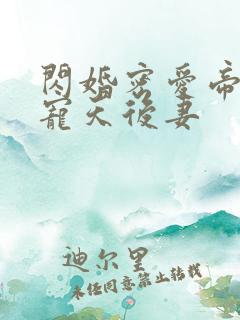 閃婚密愛帝
寵天後妻
迪尔里
未经同意禁止转载